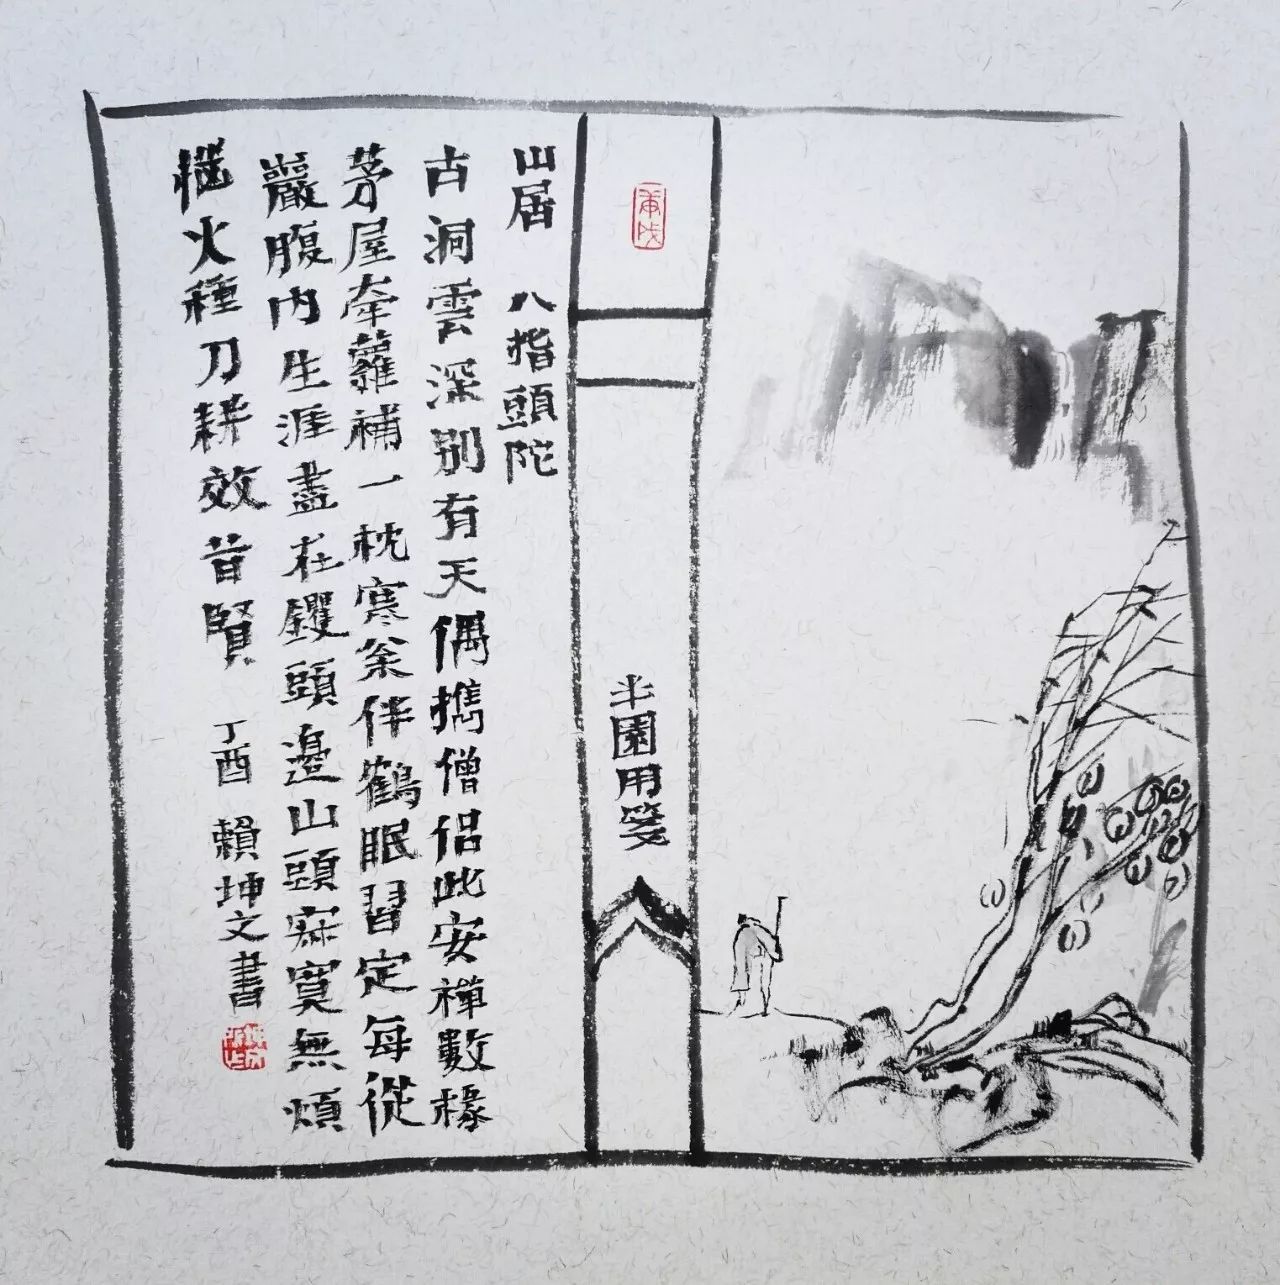 山居　八指頭陀
古洞雲深別有天偶攜僧侣此安禪數椽
茅屋牽蘿補一枕寒衾伴鶴眠習定每從
巖腹内生涯盡在钁頭邊山頭寂寞無煩
惱火種刀耕效昔賢　丁酉　賴坤文書
半園用箋